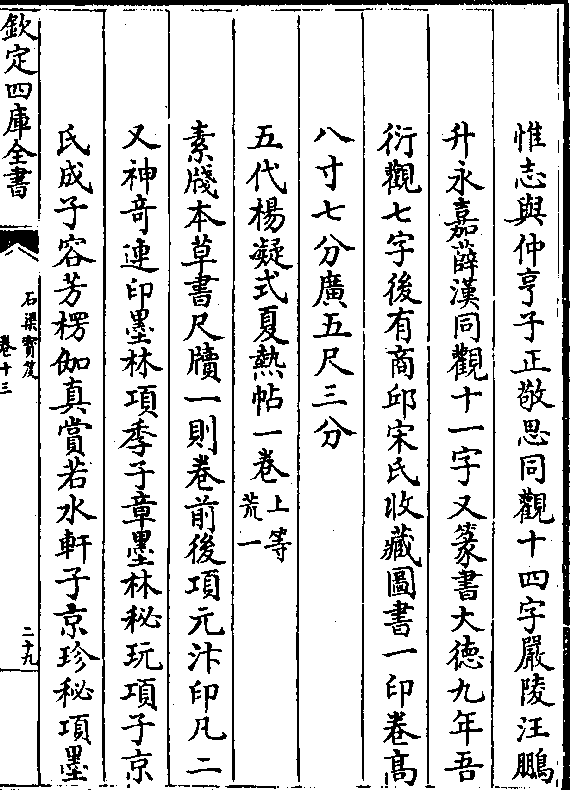 惟志與仲亨子正敬思同觀十四字嚴陵汪鵬
升永嘉薛漢同觀十一字又篆書大徳九年吾
衍觀七字後有商邱宋氏收藏圖書一印卷髙
八寸七分廣五尺三分
五代楊凝式夏熱帖一卷上等荒一
素牋本草書尺牘一則卷前後項元汴印凡二
又神竒連印墨林項季子章墨林秘玩項子京
氏成子容芳楞伽真賞若水軒子京珍秘項墨
欽定四庫全書
石渠寳笈
卷十三
二十九